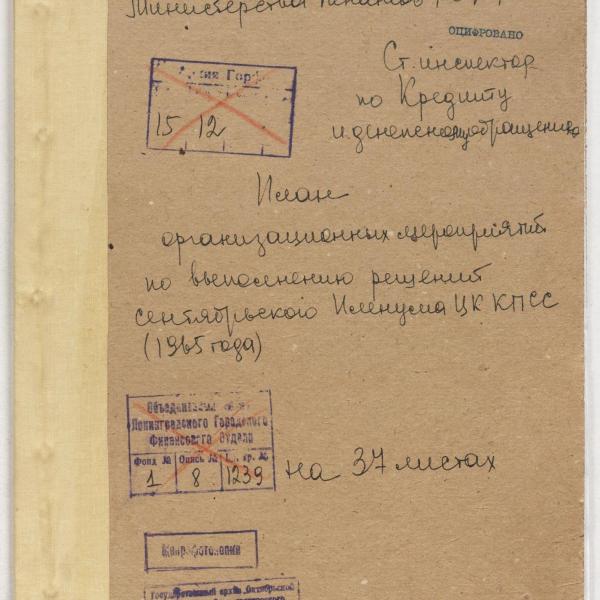 Министерства Финансов
ОЦИФРОВАНО
Ст. инспектор
по Кредиту
и денежному обращению
15 12
План
организационных мероприятий
по выполнению решений
сентябрьского Пленума ЦК КПСС
(1965 года)
Ленинградского Городского
Финансового Отдела
Фонд № Опись №
1 8 1239
на 37 листах
Микрофотокопия
Государственный архив Октябрьской